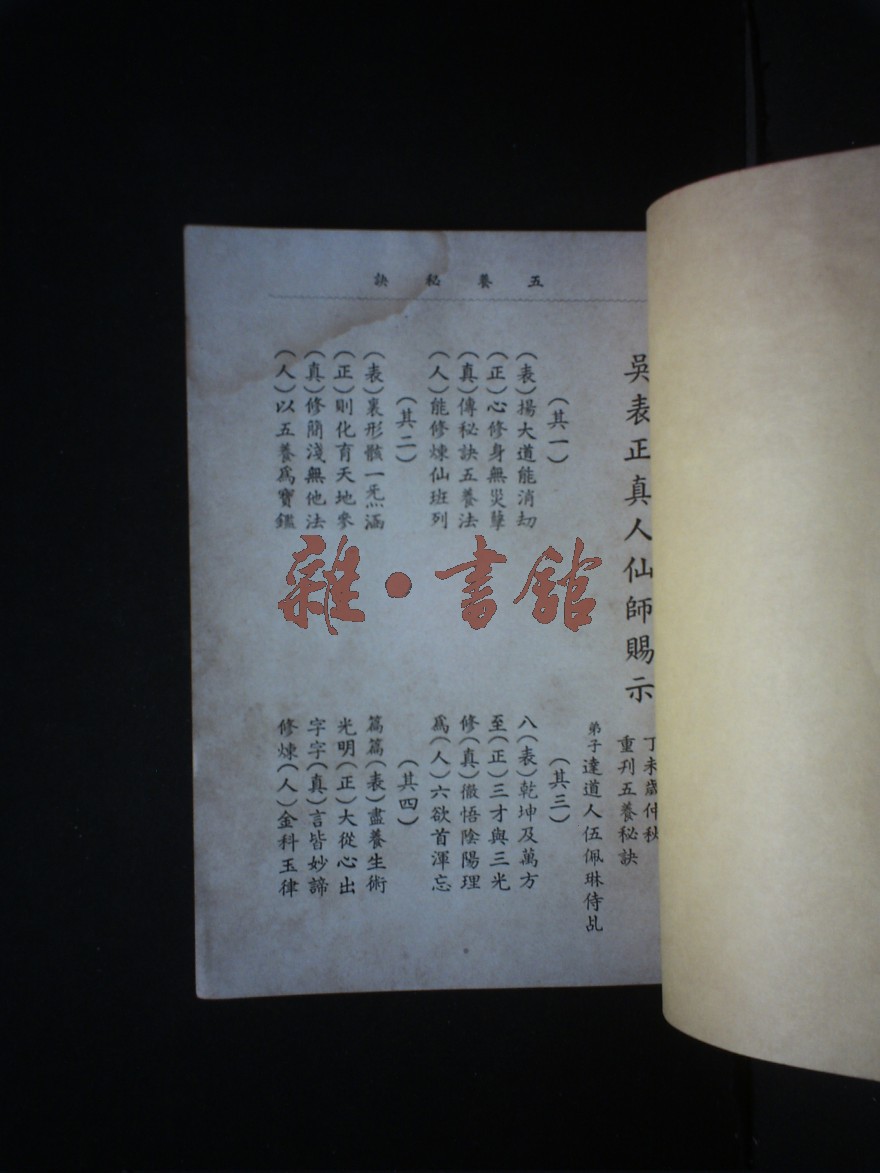 五養秘訣
吳表正真人仙師賜示
丁未歲仲秋
重刋五養秘訣
弟子達道人伍佩琳侍乩
(其一)
(表)揚大道能消刧
(正)心修身無災孽
(真)傳秘訣五養法
(人)能修煉仙班列
(其二)
(表)裏形骸一炁涵
(正)則化育天地參
(真)修簡淺無他法
(人)以五養爲寶鑑
(其三)
八(表)乾坤及萬方
至(正)三才與三光
修(真)徹悟陰陽理
爲(人)六欲首渾忘
(其四)
篇篇(表)盡養生術
光明(正)大從心出
字字(真)言皆妙諦
修煉(人)金科玉律
雜·書館